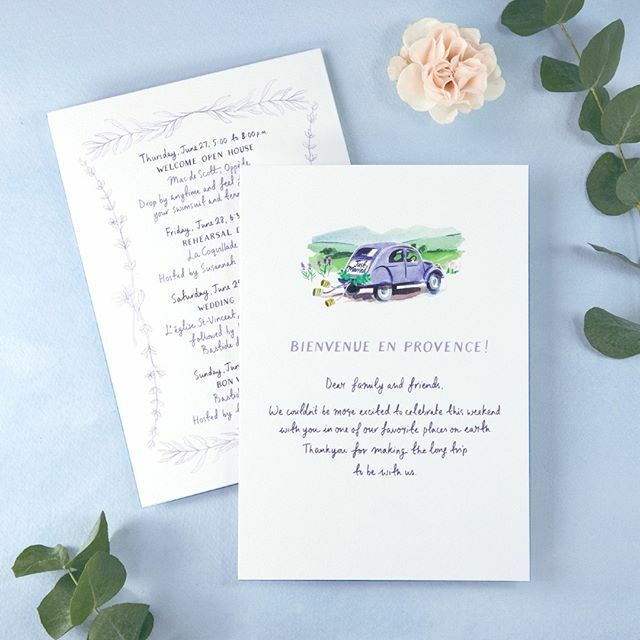 Thursday, June 27, 5:00 to 8:00pm
WELCOME OPEN HOUSE
Mas de Scott, Oppède
Drop by anytime and feel
your swimsuit and
Friday, June 28,
REHEARSAL
La Coquillade
Hosted by Susannah
Saturday, June
WEDDING
L'église St-Vincent
followed by
Bastide
Sunday, June
BON
Bastide
Hosted by
Just Married
BIENVENUE EN PROVENCE!
Dear family and friends,
We couldn't be more excited to celebrate this weekend
with you in one of our favorite places on earth
Thank you for making the long trip
to be with us.